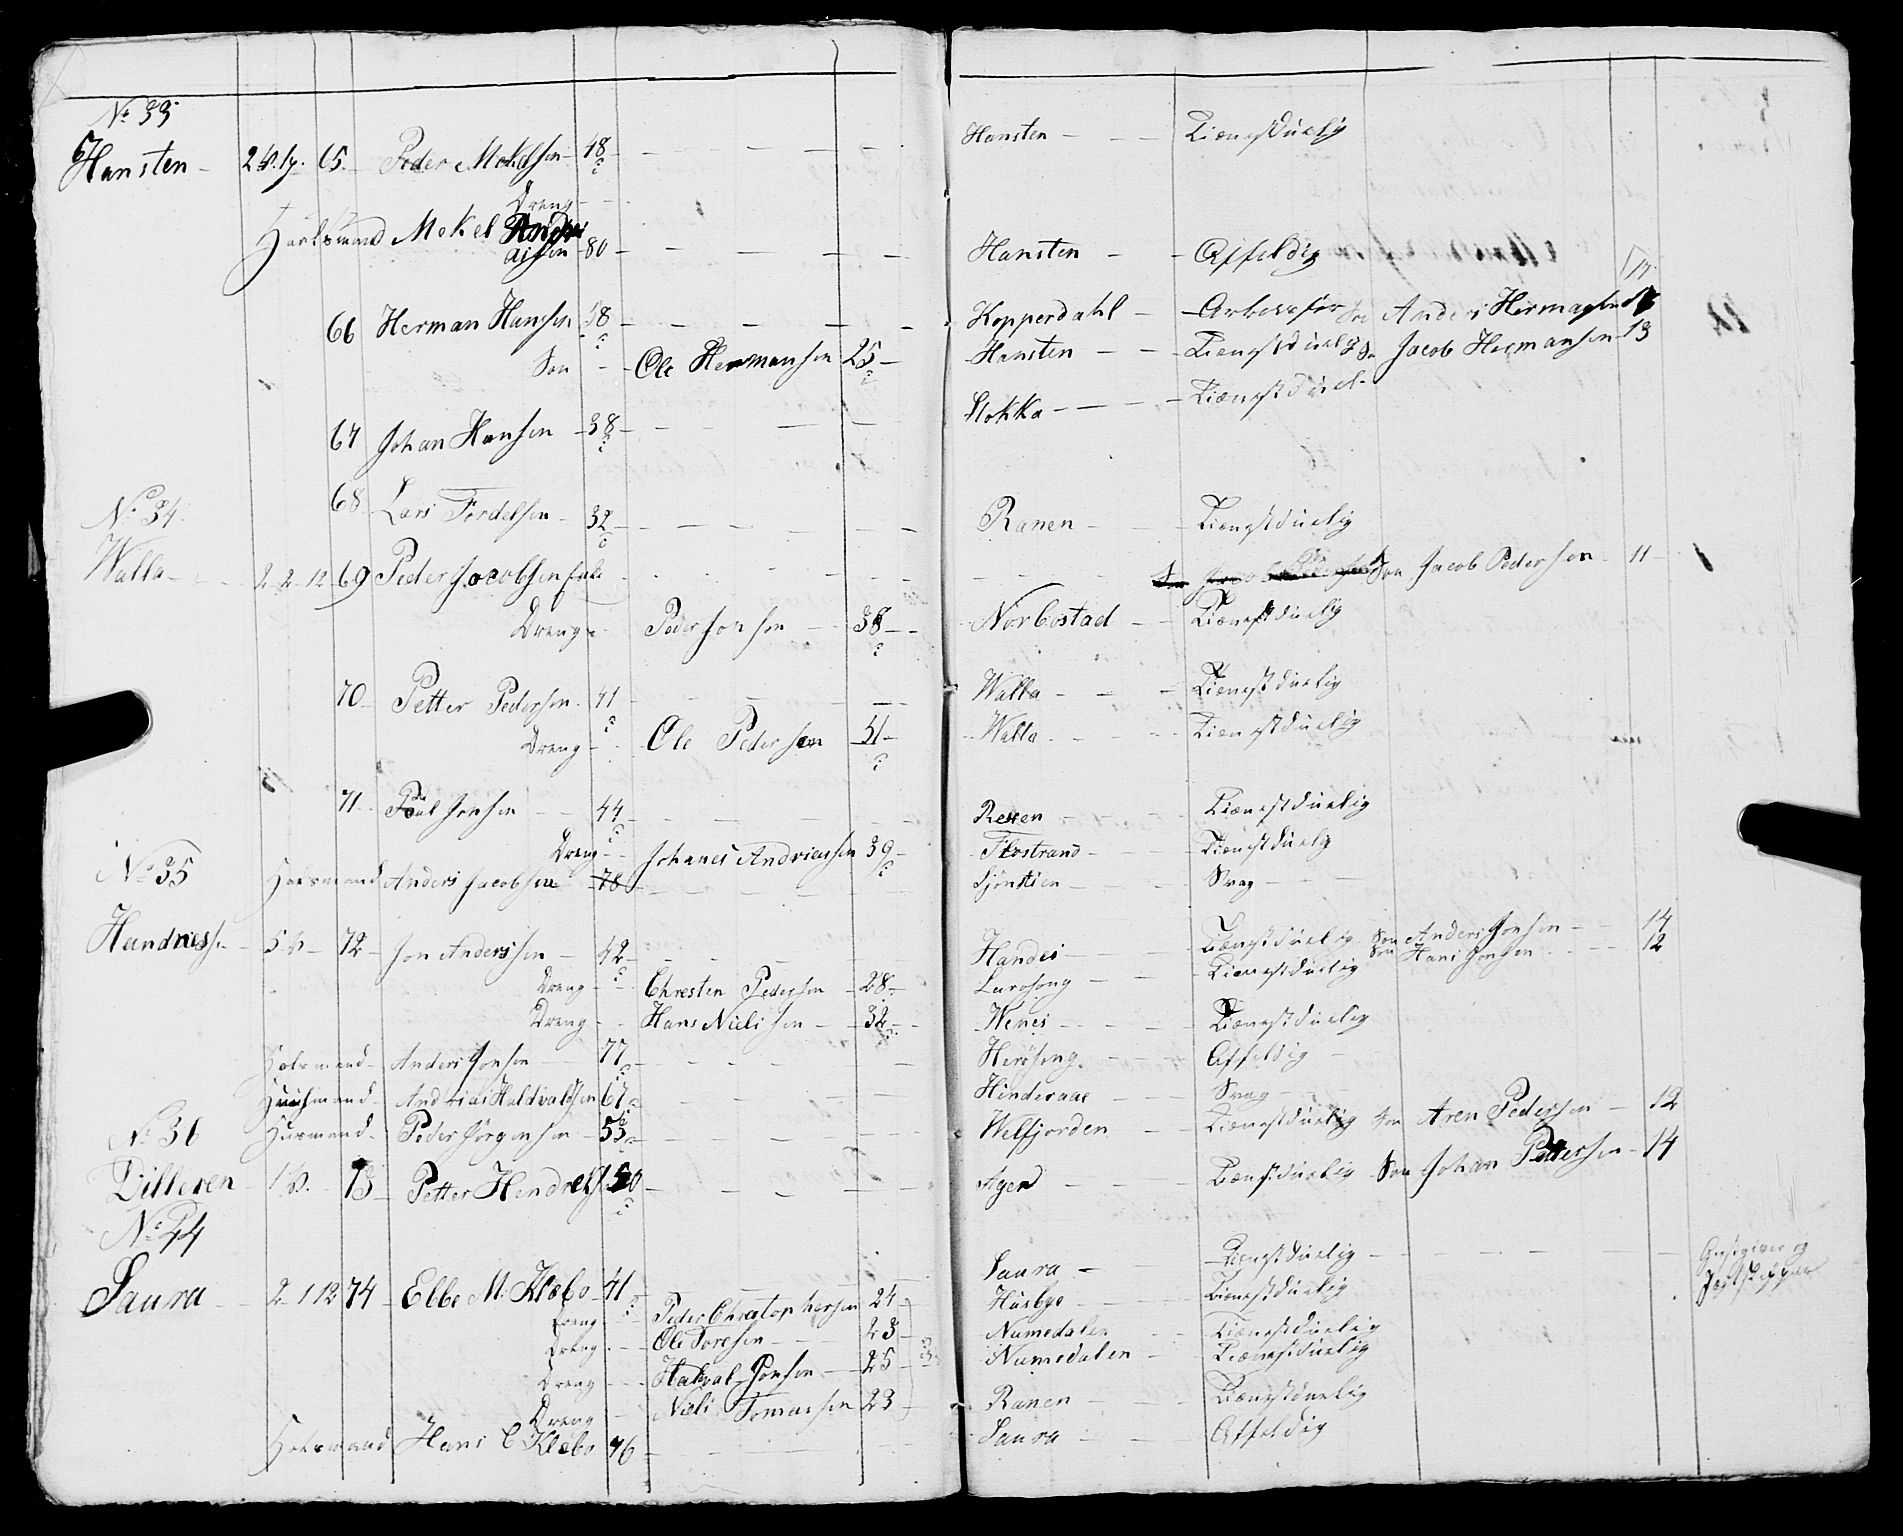 No 33
Hansten - 2 W. 1 p. 65. Peder Mokelsen - 48 - Hansten - Tienestduelig
Dreng -
Huusmand Mokel Andri
aisen - 80 - Hansten - Affeldig
66 Herman Hansen 48 - Kopperdahl - Arbeisfør Søn Anders Hermansen 16
Søn - Ole Hermansen 25 - Hansten - Tienestduelig Søn Jacob Hermansen 13
67 Johan Hansen - 38 - Stokka - Tienestduel.
68 Lars Tordelsen - 32 - Ranen - Tienestduelig
No 34
Walla - 2 - 2 - 12 69 Peder Jacobsen - Søn Jacob Pedersen - 11
Dreng - Peder Jonsen - 38 - Norbostad - Tienestduelig
70 Petter Pedersen - 41 - Walla - Tienestduelig
Dreng - Ole Pedersen 51 - Walla - Tienestduelig
71 Poul Jonsen - 44 - Resen - Tienestduelig
Dreng - Johanes Andriassen 39 - Flostrand - Tienestduelig
No 35
Hosmand Anders Jacobsen 78 - Sjønstien - Svag
Handnes - 5 W - 72 - Jon Anderssen - 42 - Handes - Tienestduelig Søn Anders Jonsen - 14
Søn Hans Jonsen - 12
Dreng - Chresten Pedersen - 28 - Lurosong - Tienestduelig
Dreng - Hans Nielssen - 32 - Wenes - Tienestduelig
Hosmand - Anders Jonsen - 77 - Herøsong - Affeldig
Huusmand - Andrias Haldvaldsen 67 - Hinderaae - Svag
No 36
Husmand - Peder Jørgensen - 55 - Welfjorden - Tienestduelig Søn Aren Pedersen - 12
Dilleren - 1 W. - 73 - Petter Hendrechs 50 - Agen - Tienestduelig Søn Johan Pettersen - 14
No 44
Saura - 2 - 1 12 74 - Elbe M. Klæbo - 41 - Saura - Tienestduelig - Gjestgiver og
Jægtskipper
Dreng - Peder Chrestophersen 24 - Husbye - Tienestduelig
Dreng - Ole Toresen - 23 - Numedalen - Tienestduelig
Dreng - Halval Jonsen - 25 - Numedalen - Tienestduelig
Dreng - Niels Tomassen 23 - Ranen - Tienestduelig
Hosmand Hans C Klæbo 76 - Saura - Affeldig